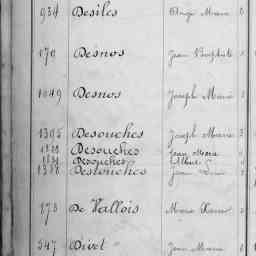 934 Desiles Marie
170 Desnos Jean Baptiste
1049 Desnos Joseph Marie
1395 Desouches Joseph Marie
Desouches Jean Marie
Desouches Albert
Destouches Jean
873 De Vallois Marie
347 Divet Jean Marie